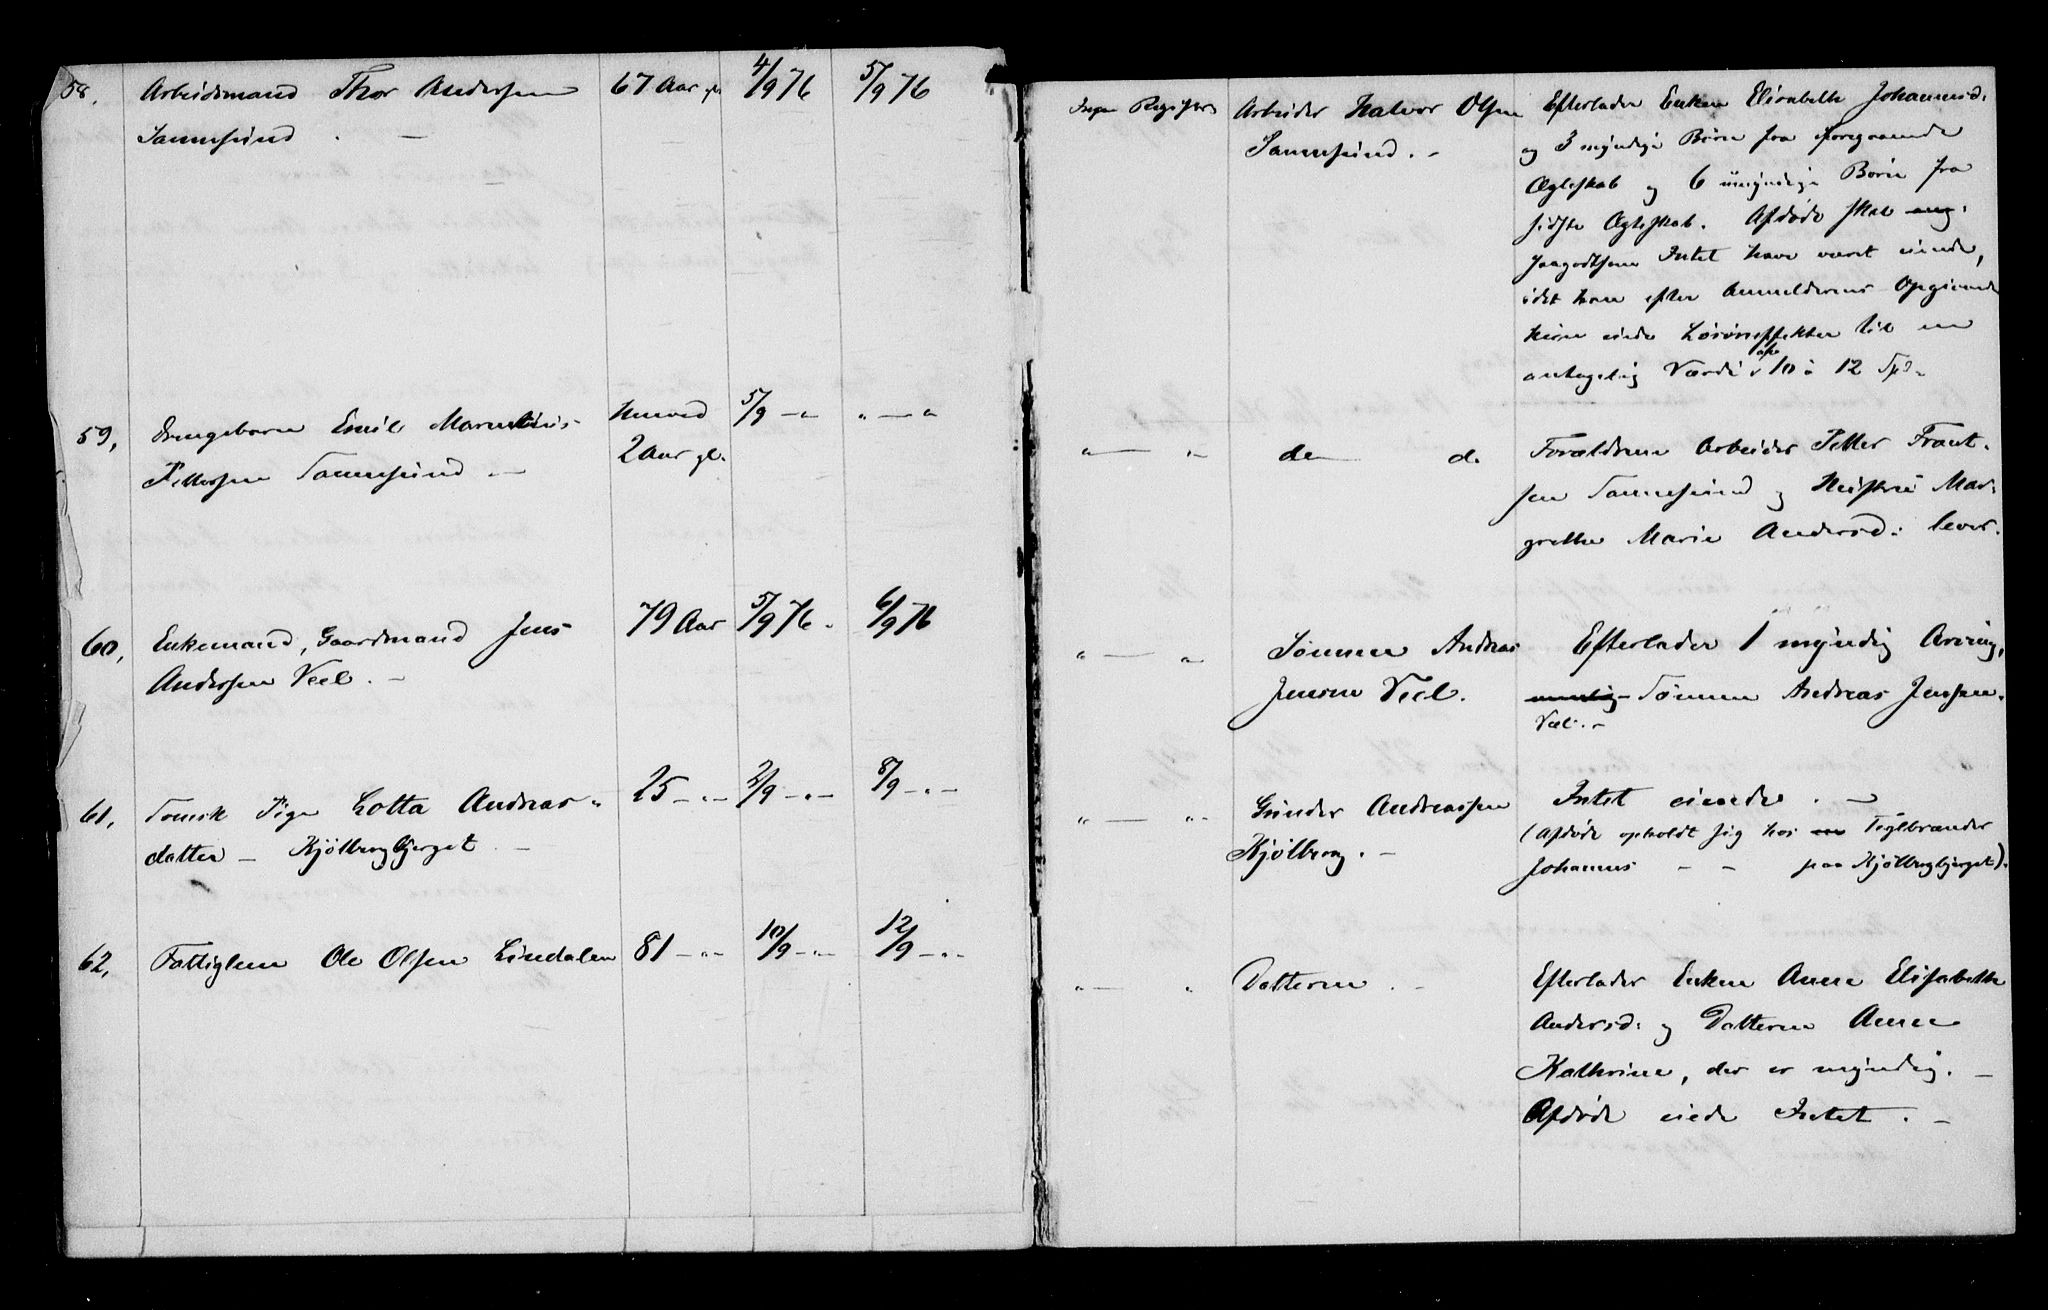 58. Arbeidsmand Thor Andersen 67 Aar gl. 4/9 76 5/9 76
Sannesund. —
59, Drengebarn Emil Marentius Henved 5/9 — " " — "
Pettersen Sannesund — 2 Aar gl.
60, Enkemand, Gaardmand Jens 79 Aar 5/9 76. 6/9 76
Andersen Veel. —
61, Svensk Pige Lotta Andreas- 25 — " — 2/9 — " — 8/9 — " —
datter — Kjölbergbjerget. —
62, Fattiglem Ole Olsen Lindalen 81 — " — 10/9 — " — 12/9 — " —
Ingen Registr. Arbeider Halvor Olsen Efterlader Enken Elisabeth Johannesd.
Sannesund. — og 3 myndige Børn fra foregaaende
Ægteskab og 6 umyndige Børn fra
sidste Ægteskab. Afdøde skal
saagodtsom Intet have været eiende,
idet han efter Anmelderens Opgivende
kun eiede Løsøreeffekter til en
antagelig Værdi af 10 à 12 Spd.
" — " — de d. Forældrene Arbeider Petter Frant-
sen Sannesund og Hustru Mar-
grethe Marie Andersd: lever.
" — " Sønnen Andreas Efterlader 1 myndig Arving,
Jensen Veel. nemlig Sønnen Andreas Jensen
Veel. —
" — " Gunder Andreassen Intet eiende. —
Kjölberg. — (Afdøde opholdt sig hos Teglbrænder
Johannes — — paa Kjölbergbjerget).
" — " Datteren. — Efterlader Enken Anne Elisabeth
Andersd: og Datteren Anne
Kathrine, der er myndig. —
Afdøde eiede Intet. —